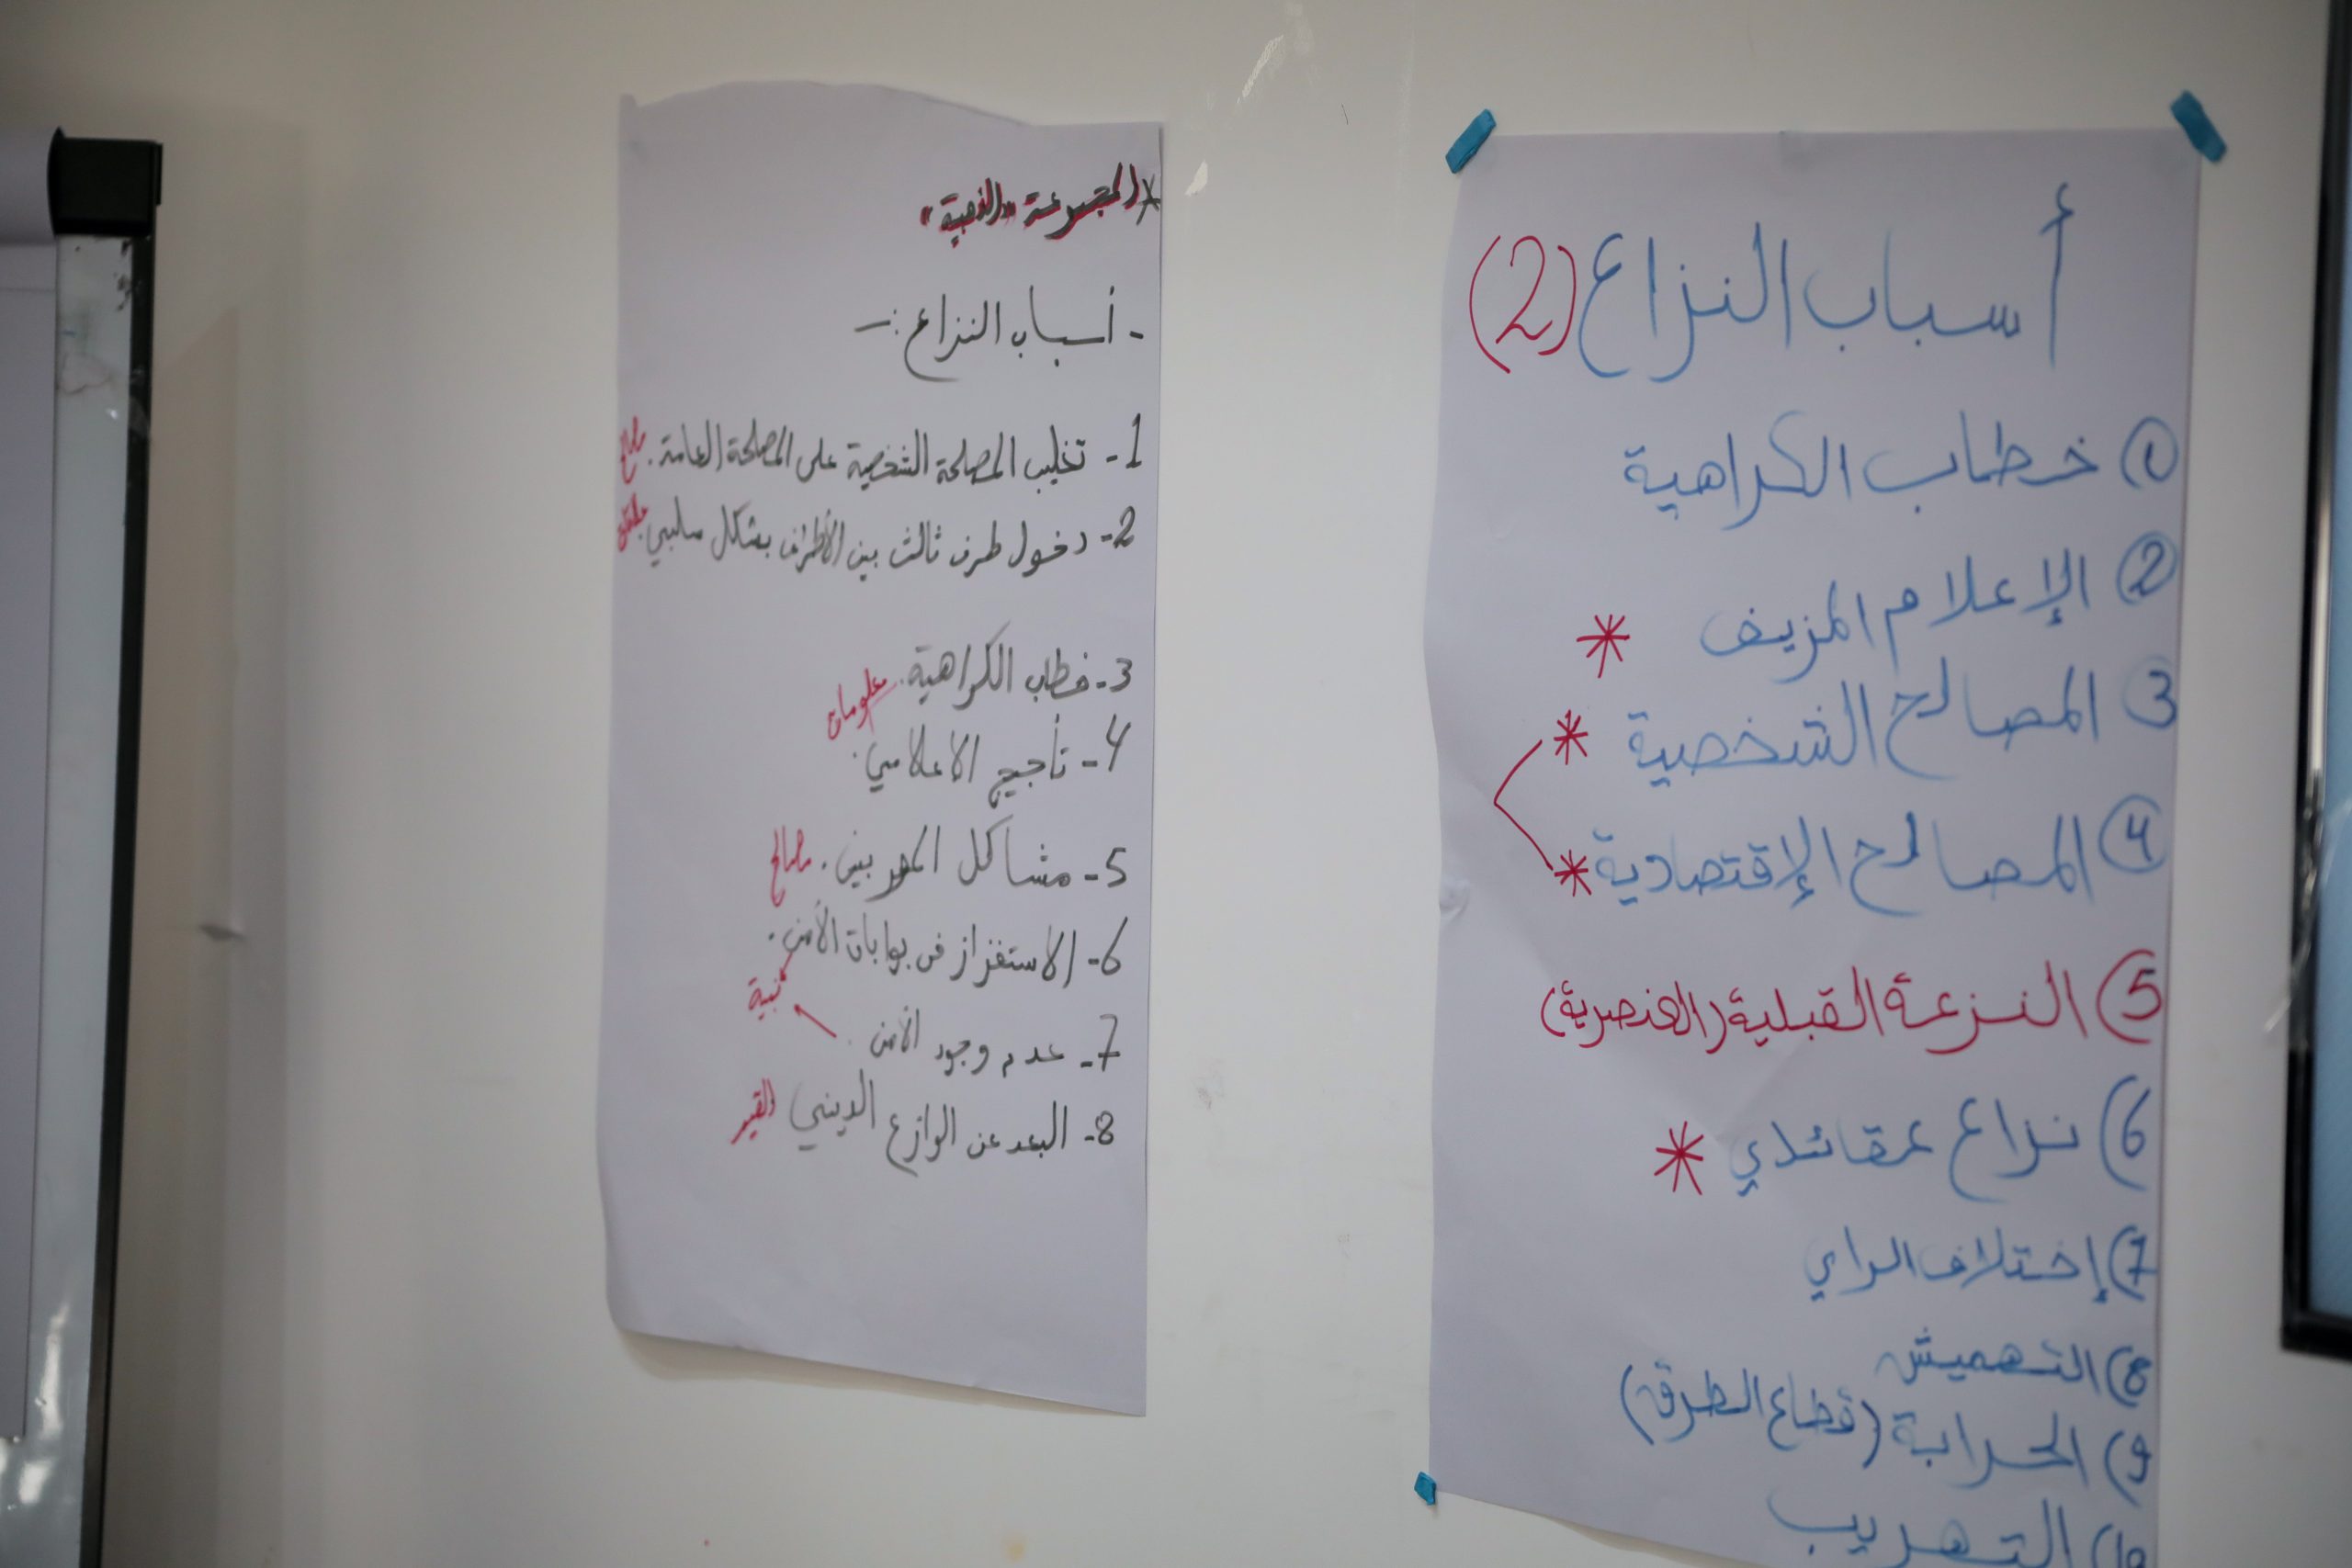 * المجموعة "الذهبية"
- أسباب النزاع :-
1- تغليب المصلحة الشخصية على المصلحة العامة. مصالح
2- دخول طرف ثالث بين الأطراف بشكل سلبي.
3- خطاب الكراهية. معلومات
4- تأجيج الاعلامي.
5- مشاكل المهربين. مصالح
6- الاستفزاز في بوابات الأمن.
7- عدم وجود الأمن.
8- البعد عن الوازع الديني القيم
أسباب النزاع (2)
1 خطاب الكراهية
2 الإعلام المزيف *
3 المصالح الشخصية *
4 المصالح الإقتصادية *
5) النزعة القبلية (العنصرية)
6) نزاع عقائدي *
7) إختلاف الراي
8) التهميش
9) الحرابة (قطاع الطرق)
10) التهريب